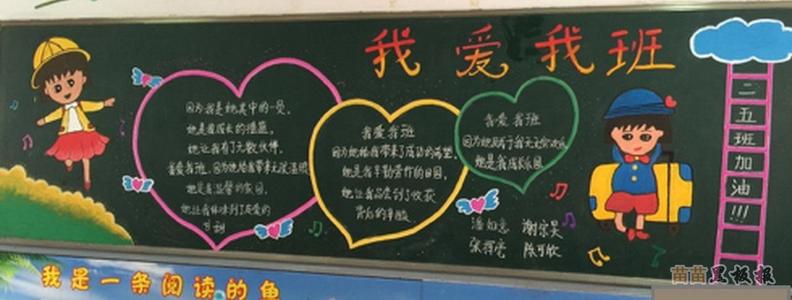 我爱我班
因为我是她其中的一员,
她是我成长的摇篮,
她让我有了无数伙伴,
我爱我班,因为她给我带来无限温暖
她是青温馨的家园,
她让我体味到了友爱的
我爱我班
因为她给我带来了成功的希望,
她是我辛勤劳作的田园,
她让我品尝到了收获
背后的辛酸
我爱我班
因为她赋予我无穷欢乐
她是我成长乐园
谢宗昊
陈可欣
二五班加油!!!
我是一条阅读的鱼
苗苗黑板报